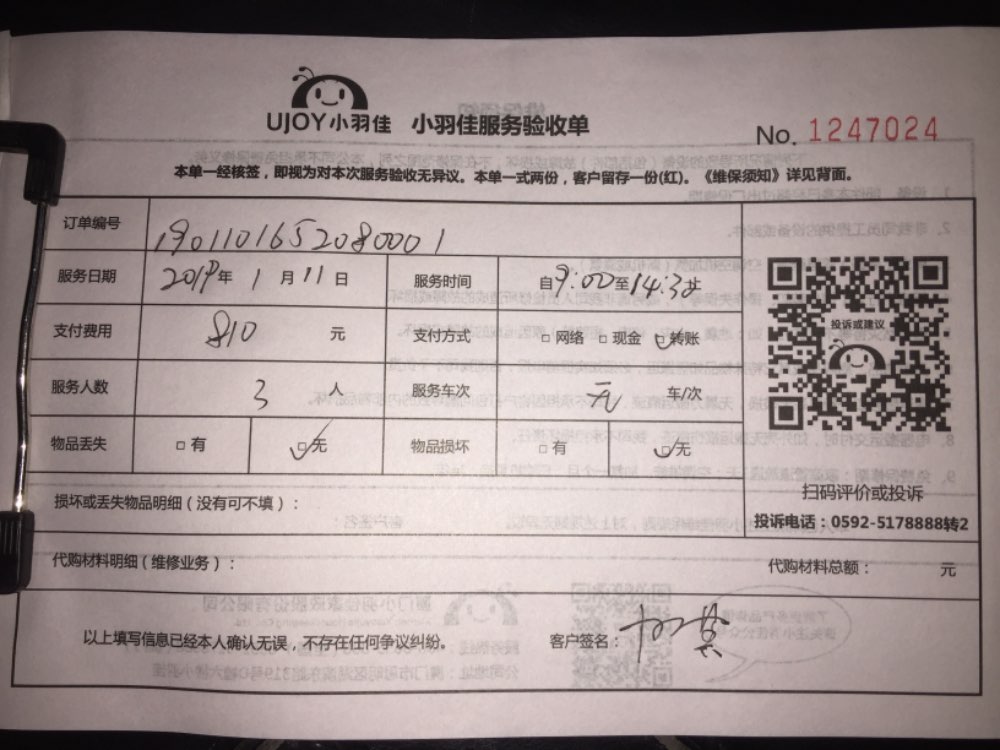 UJOY小羽佳 小羽佳服务验收单
No. 1247024
本单一经核签，即视为对本次服务验收无异议。本单一式两份，客户留存一份(红)。《维保须知》详见背面。
订单编号 1901101652080001
服务日期 2019年 1 月 11 日 服务时间 自9:00至14:3
支付费用 810 元 支付方式 □ 网络 □ 现金 □ 转账
投诉或建议
服务人数 3 人 服务车次 无 车/次
物品丢失 □ 有 □ 无 物品损坏 □ 有 □ 无
扫码评价或投诉
损坏或丢失物品明细（没有可不填）：
投诉电话：0592-5178888转2
代购材料明细（维修业务）： 代购材料总额： 元
以上填写信息已经本人确认无误，不存在任何争议纠纷。 客户签名：